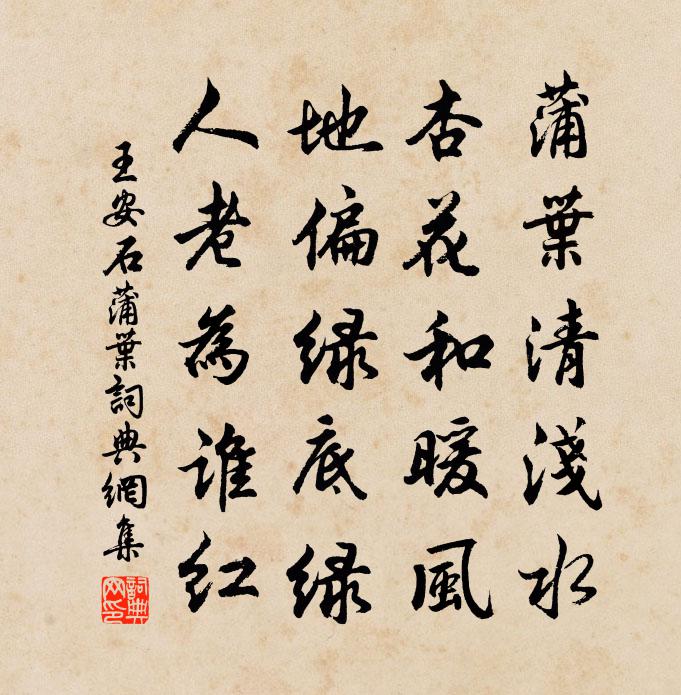 蒲葉清淺水
杏花和暖風
地偏緑底緑
人老為誰紅
王安石蒲葉詞典網集
詞典
网印